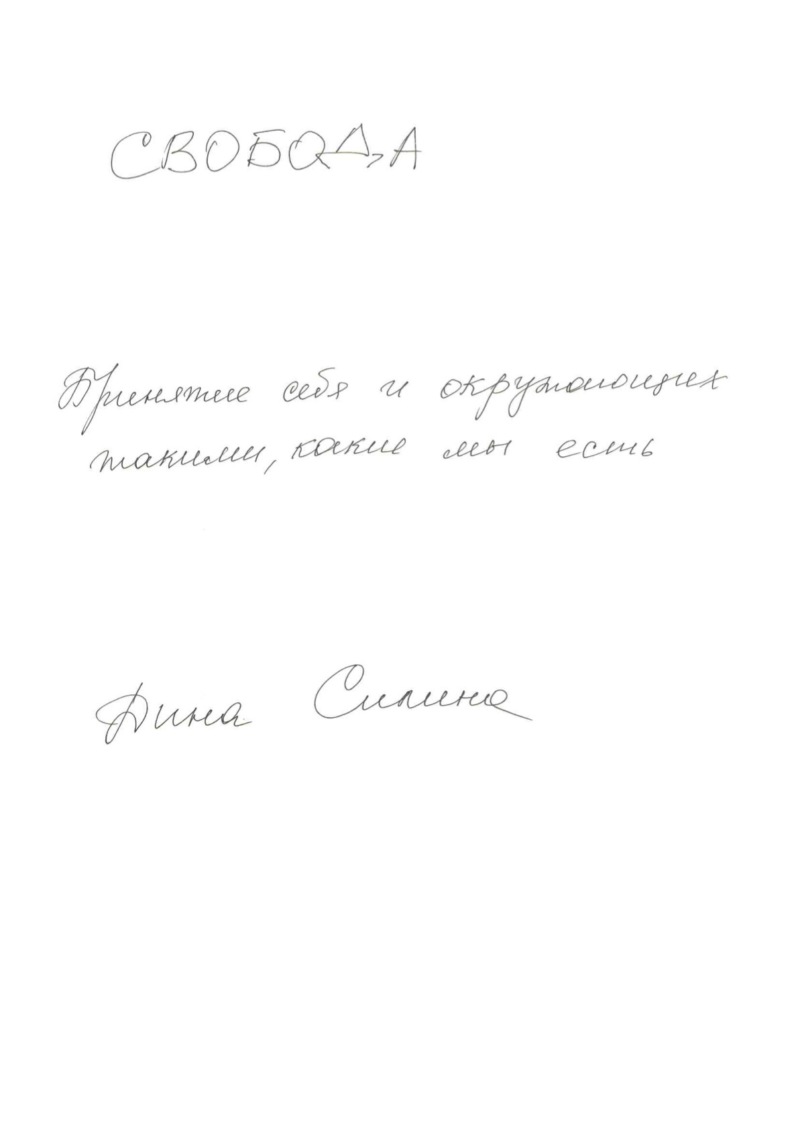 СВОБОДА
Принятие себя и окружающих
такими, какие мы есть
Дина Силина